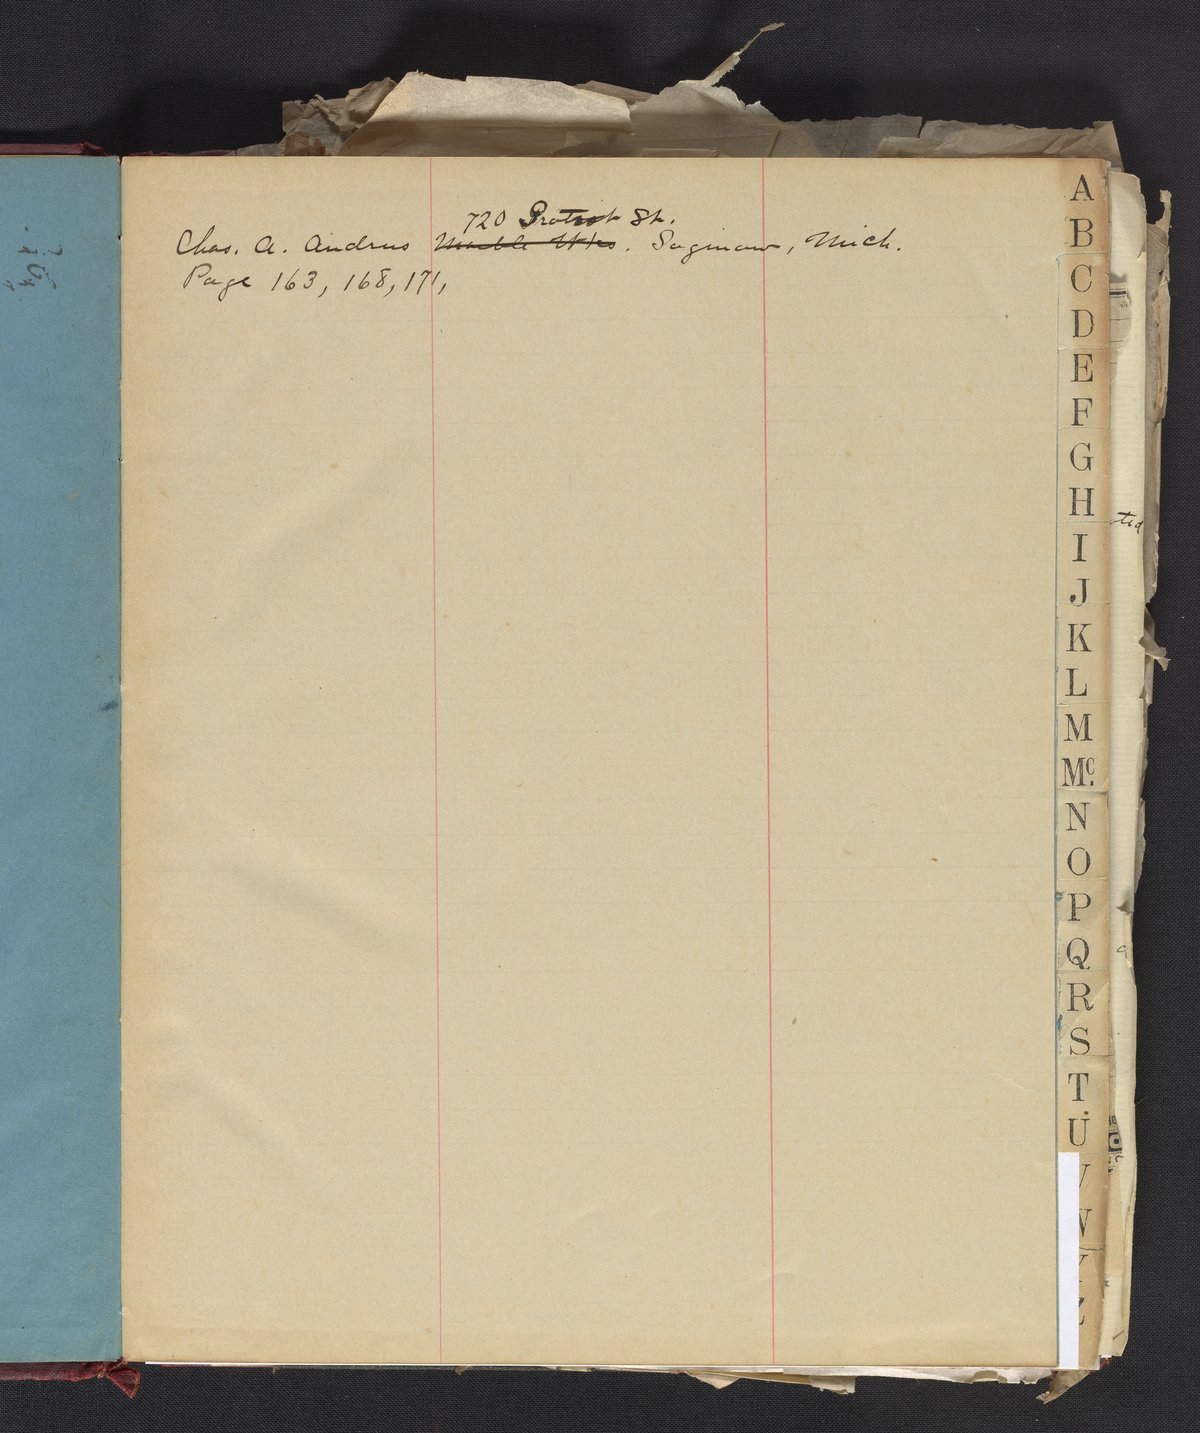 720 Gratiot St.
Chas. A. Andrus Marble Wks. Saginaw, Mich.
Page 163, 168, 171,
A
B
C
D
E
F
G
H
I
J
K
L
M
Mc.
N
O
P
Q
R
S
T
U
V
W
Y
Z